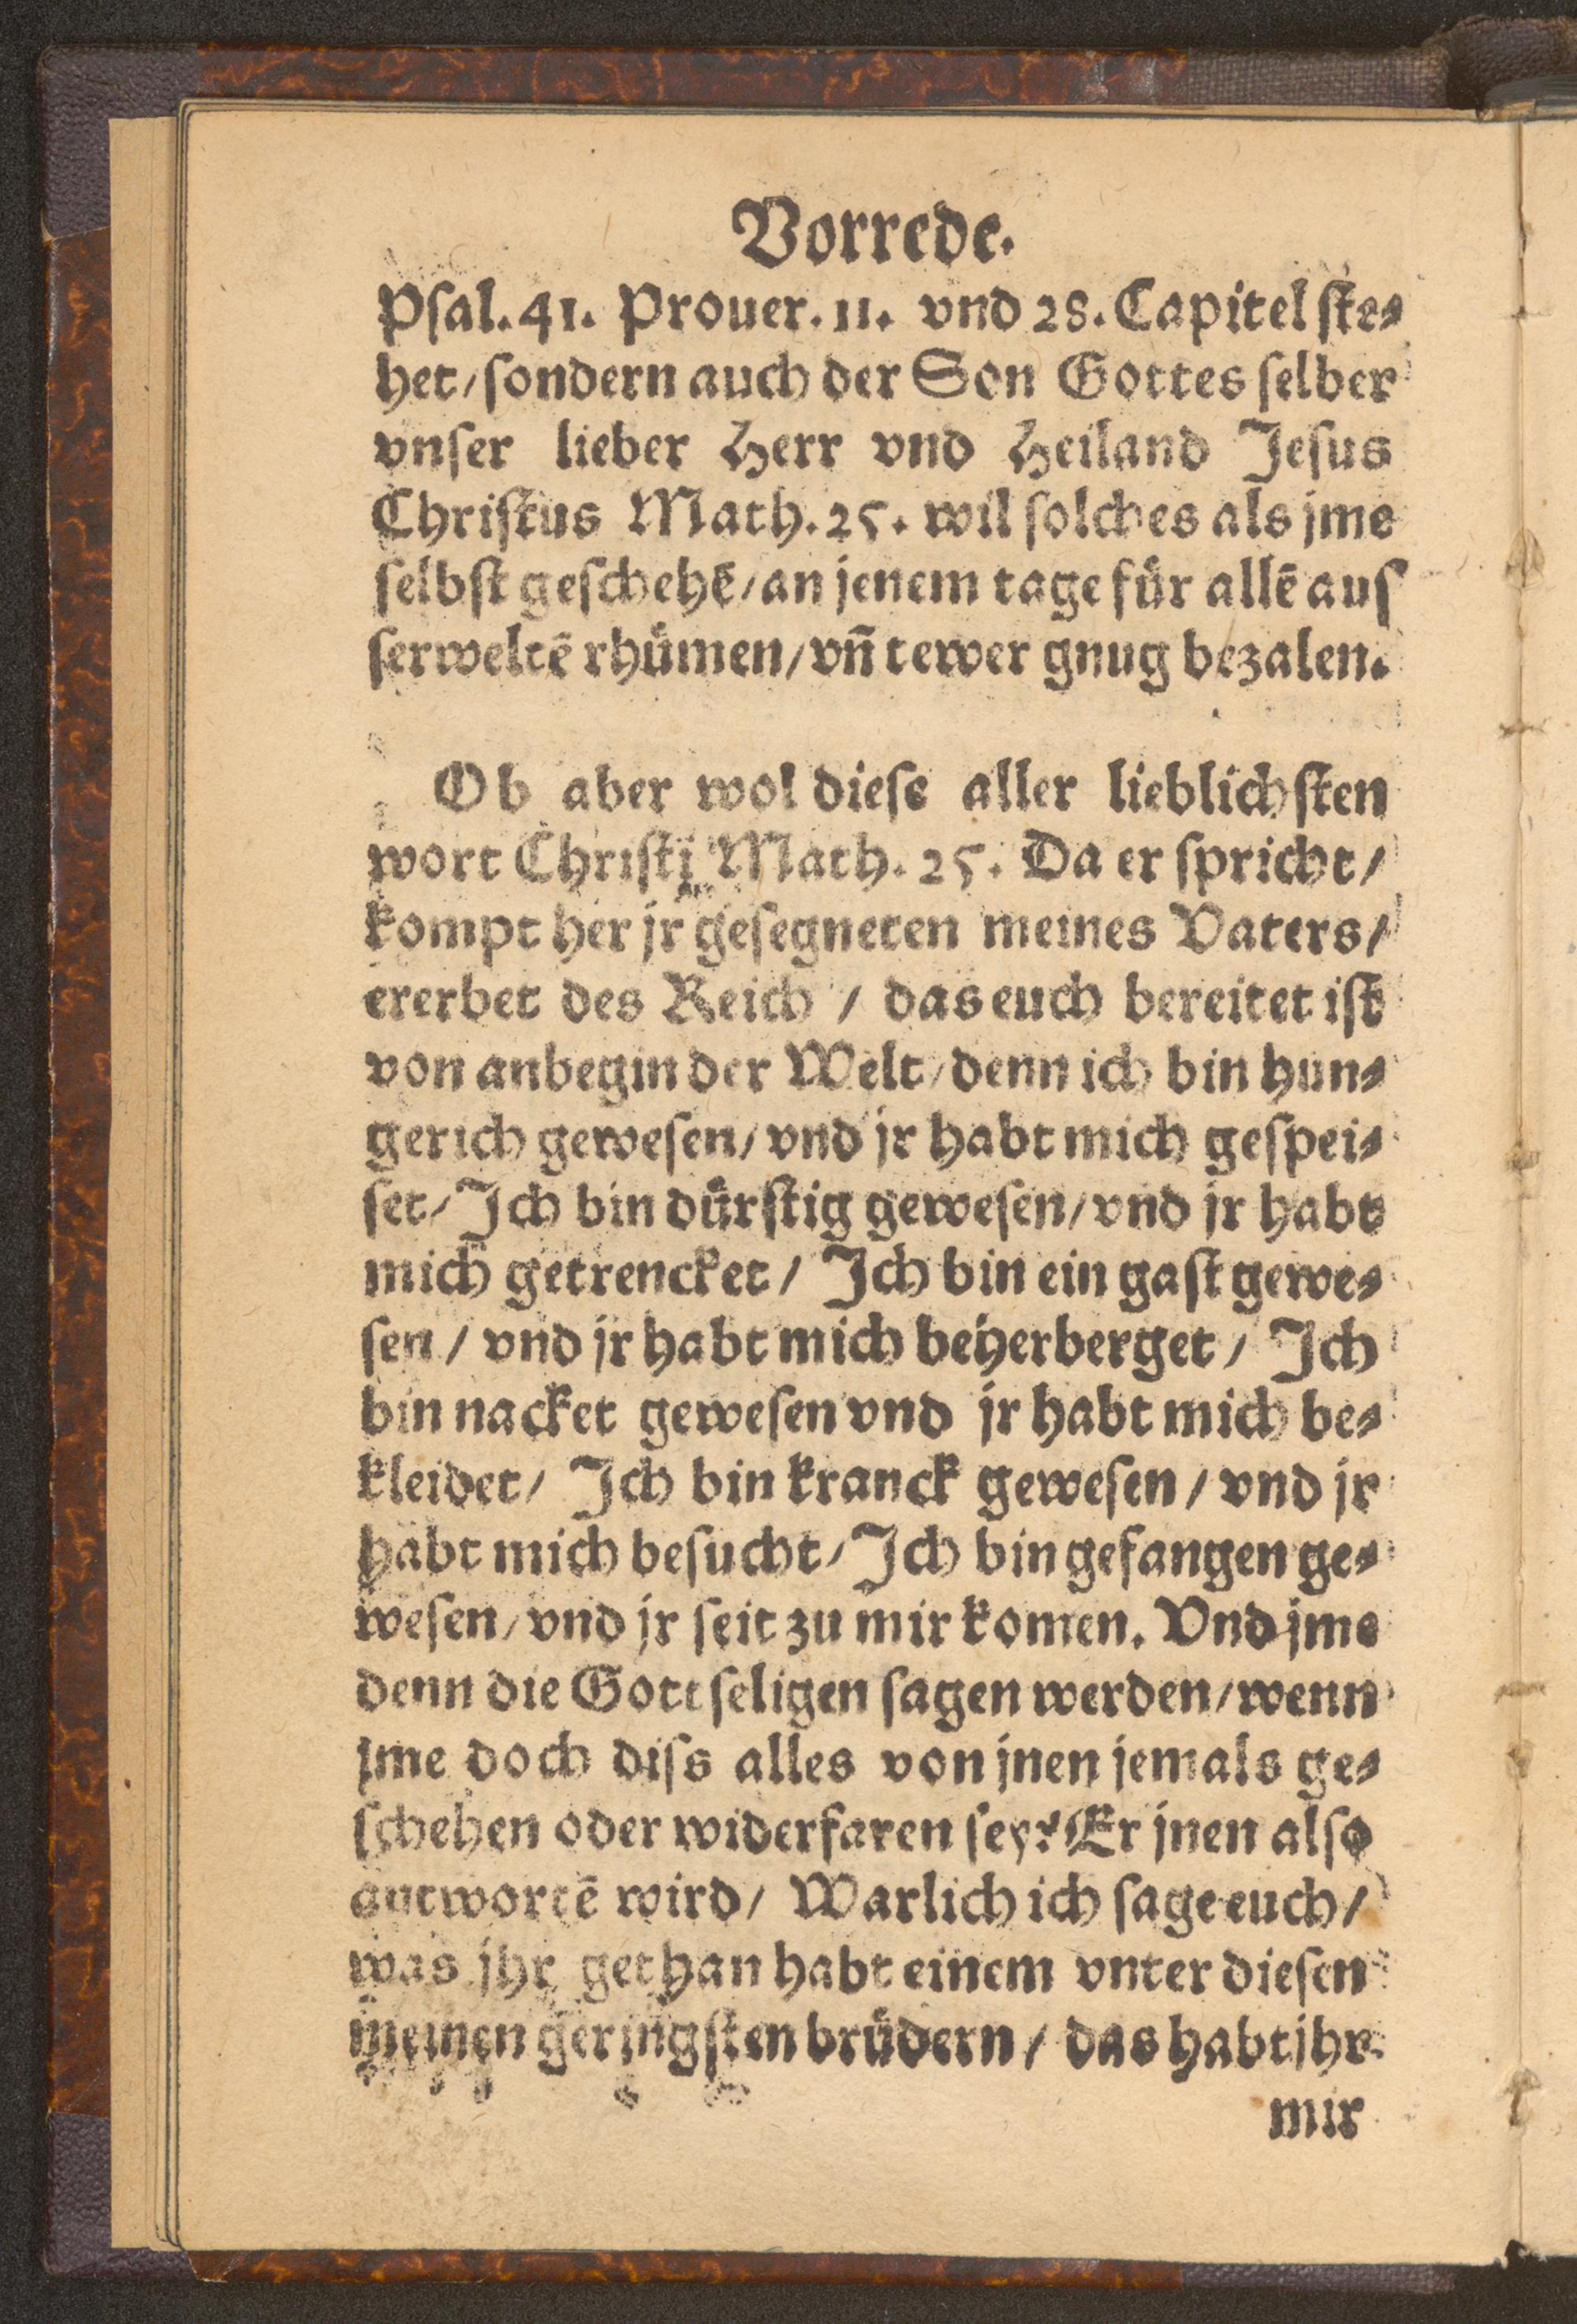 Vorrede.
Psal. 41. Prouer. 11. vnd 28. Capitel ste⸗
het / sondern auch der Son Gottes selber
vnser lieber Herr vnd Heiland Jesus
Christus Math. 25. wil solches als jme
selbst geschehē / an jenem tage fuͤr allē aus
serweltē rhuͤmen / vñ tewer gnug bezalen.
Ob aber wol diese aller lieblichsten
wort Christi Math. 25. Da er spricht /
kompt her jr gesegneten meines Vaters /
ererbet des Reich / das euch bereitet ist
von anbegin der Welt / denn ich bin hun⸗
gerich gewesen / vnd jr habt mich gespei⸗
set / Ich bin duͤrstig gewesen / vnd jr habt
mich getrencket / Ich bin ein gast gewe⸗
sen / vnd jr habt mich beherberget / Ich
bin nacket gewesen vnd jr habt mich be⸗
kleidet / Ich bin kranck gewesen / vnd jr
habt mich besucht / Ich bin gefangen ge⸗
wesen / vnd jr seit zu mir komen. Vnd jme
denn die Gottseligen sagen werden / wenn
jme doch diss alles von jnen jemals ge⸗
schehen oder widerfaren sey? Er jnen also
antwortē wird / Warlich ich sage euch /
was jhr gethan habt einem vnter diesen
meinen geringsten bruͤdern / das habt jhr
mir